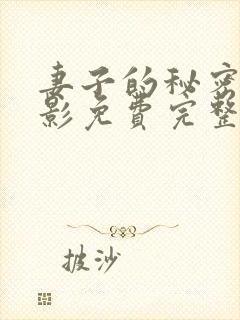 妻子的秘密
影免费完整
披沙